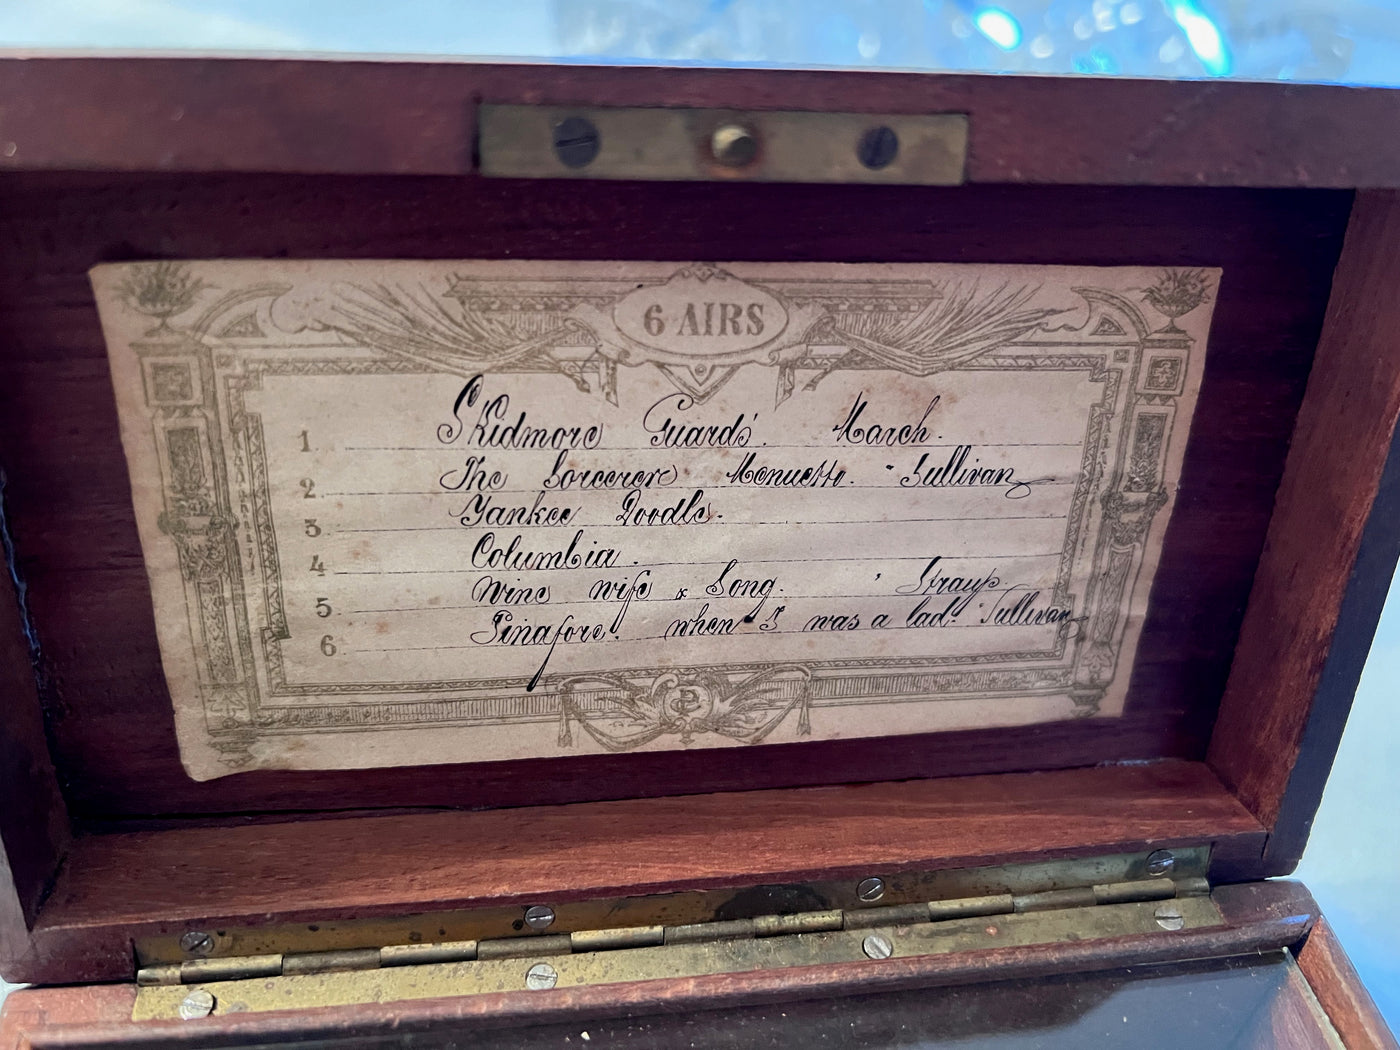 6 AIRS
1 Skidmore Guards'. March.
2. The Sorcerer Menuetto. - Sullivan
3 Yankee Doodle.
4 Columbia.
5. Wine wife & Song. ' Strauß
6. Pinafore. when I was a lad. Sullivan